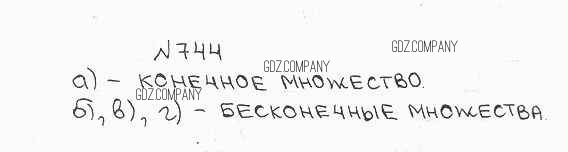 N744
GDZ.COMPANY
GDZ.COMPANY
а) – КОНЕЧНОЕ МНОЖЕСТВО.
GDZ.COMPANY
б), в), г) – БЕСКОНЕЧНЫЕ МНОЖЕСТВА.